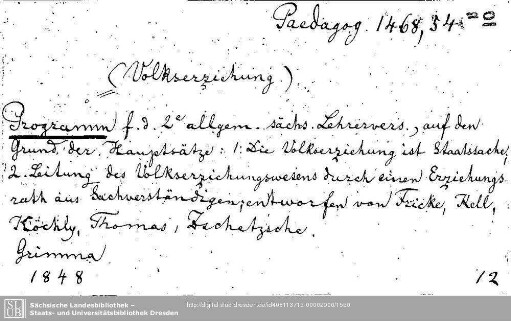 Paedagog. 1468, 54
(Volkserziehung)
Programm f. d. 2e allgem. sächs. Lehrervers., auf den
Grund der Hauptsätze: 1. Die Volkserziehung ist Staatssache,
2. Leitung des Volkserziehungswesens durch einen Erziehungs
rath aus Sachverständigen; entworfen von Fricke, Kell,
Köchly, Thomas, Zschetzsche.
Grimma
1848 12
SLUB
Sächsische Landesbibliothek –
Staats- und Universitätsbibliothek Dresden